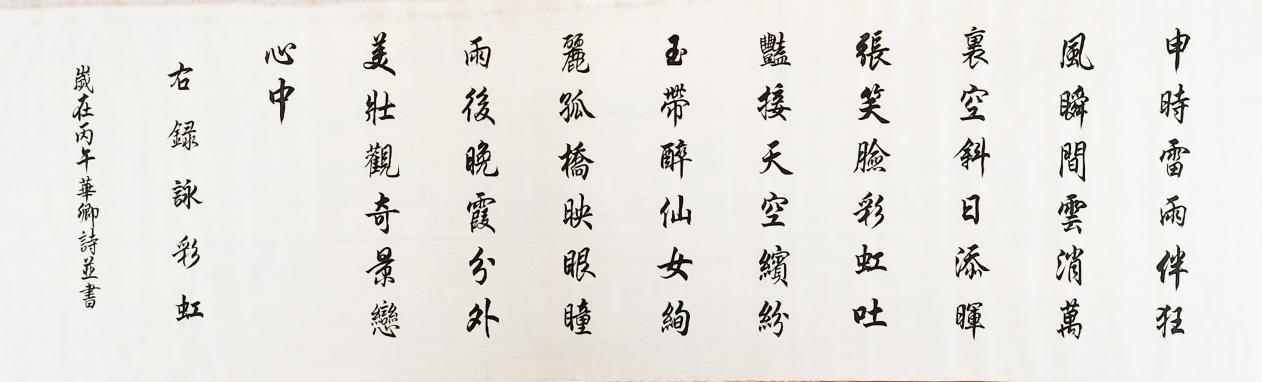 申時雷雨伴狂
風瞬間雲消萬
裏空斜日添暉
張笑臉彩虹吐
豔接天空繽紛
玉帶醉仙女絢
麗孤橋映眼瞳
雨後晚霞分外
美壯觀奇景戀
心中
右録詠彩虹
嵗在丙午華卿詩並書